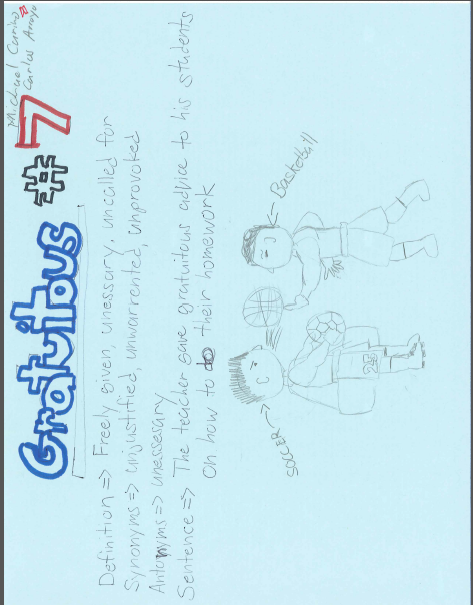 Michael Carrizo
Carlos Arroyo
Gratuitous #7
Definition => Freely given, unessary. uncalled for
Synonyms => unjustified, unwarranted, unprovoked
Antonyms => unessesary
Sentence => The teacher gave gratuitous advice to his students
on how to do their homework
SOCCER
Basketball
25